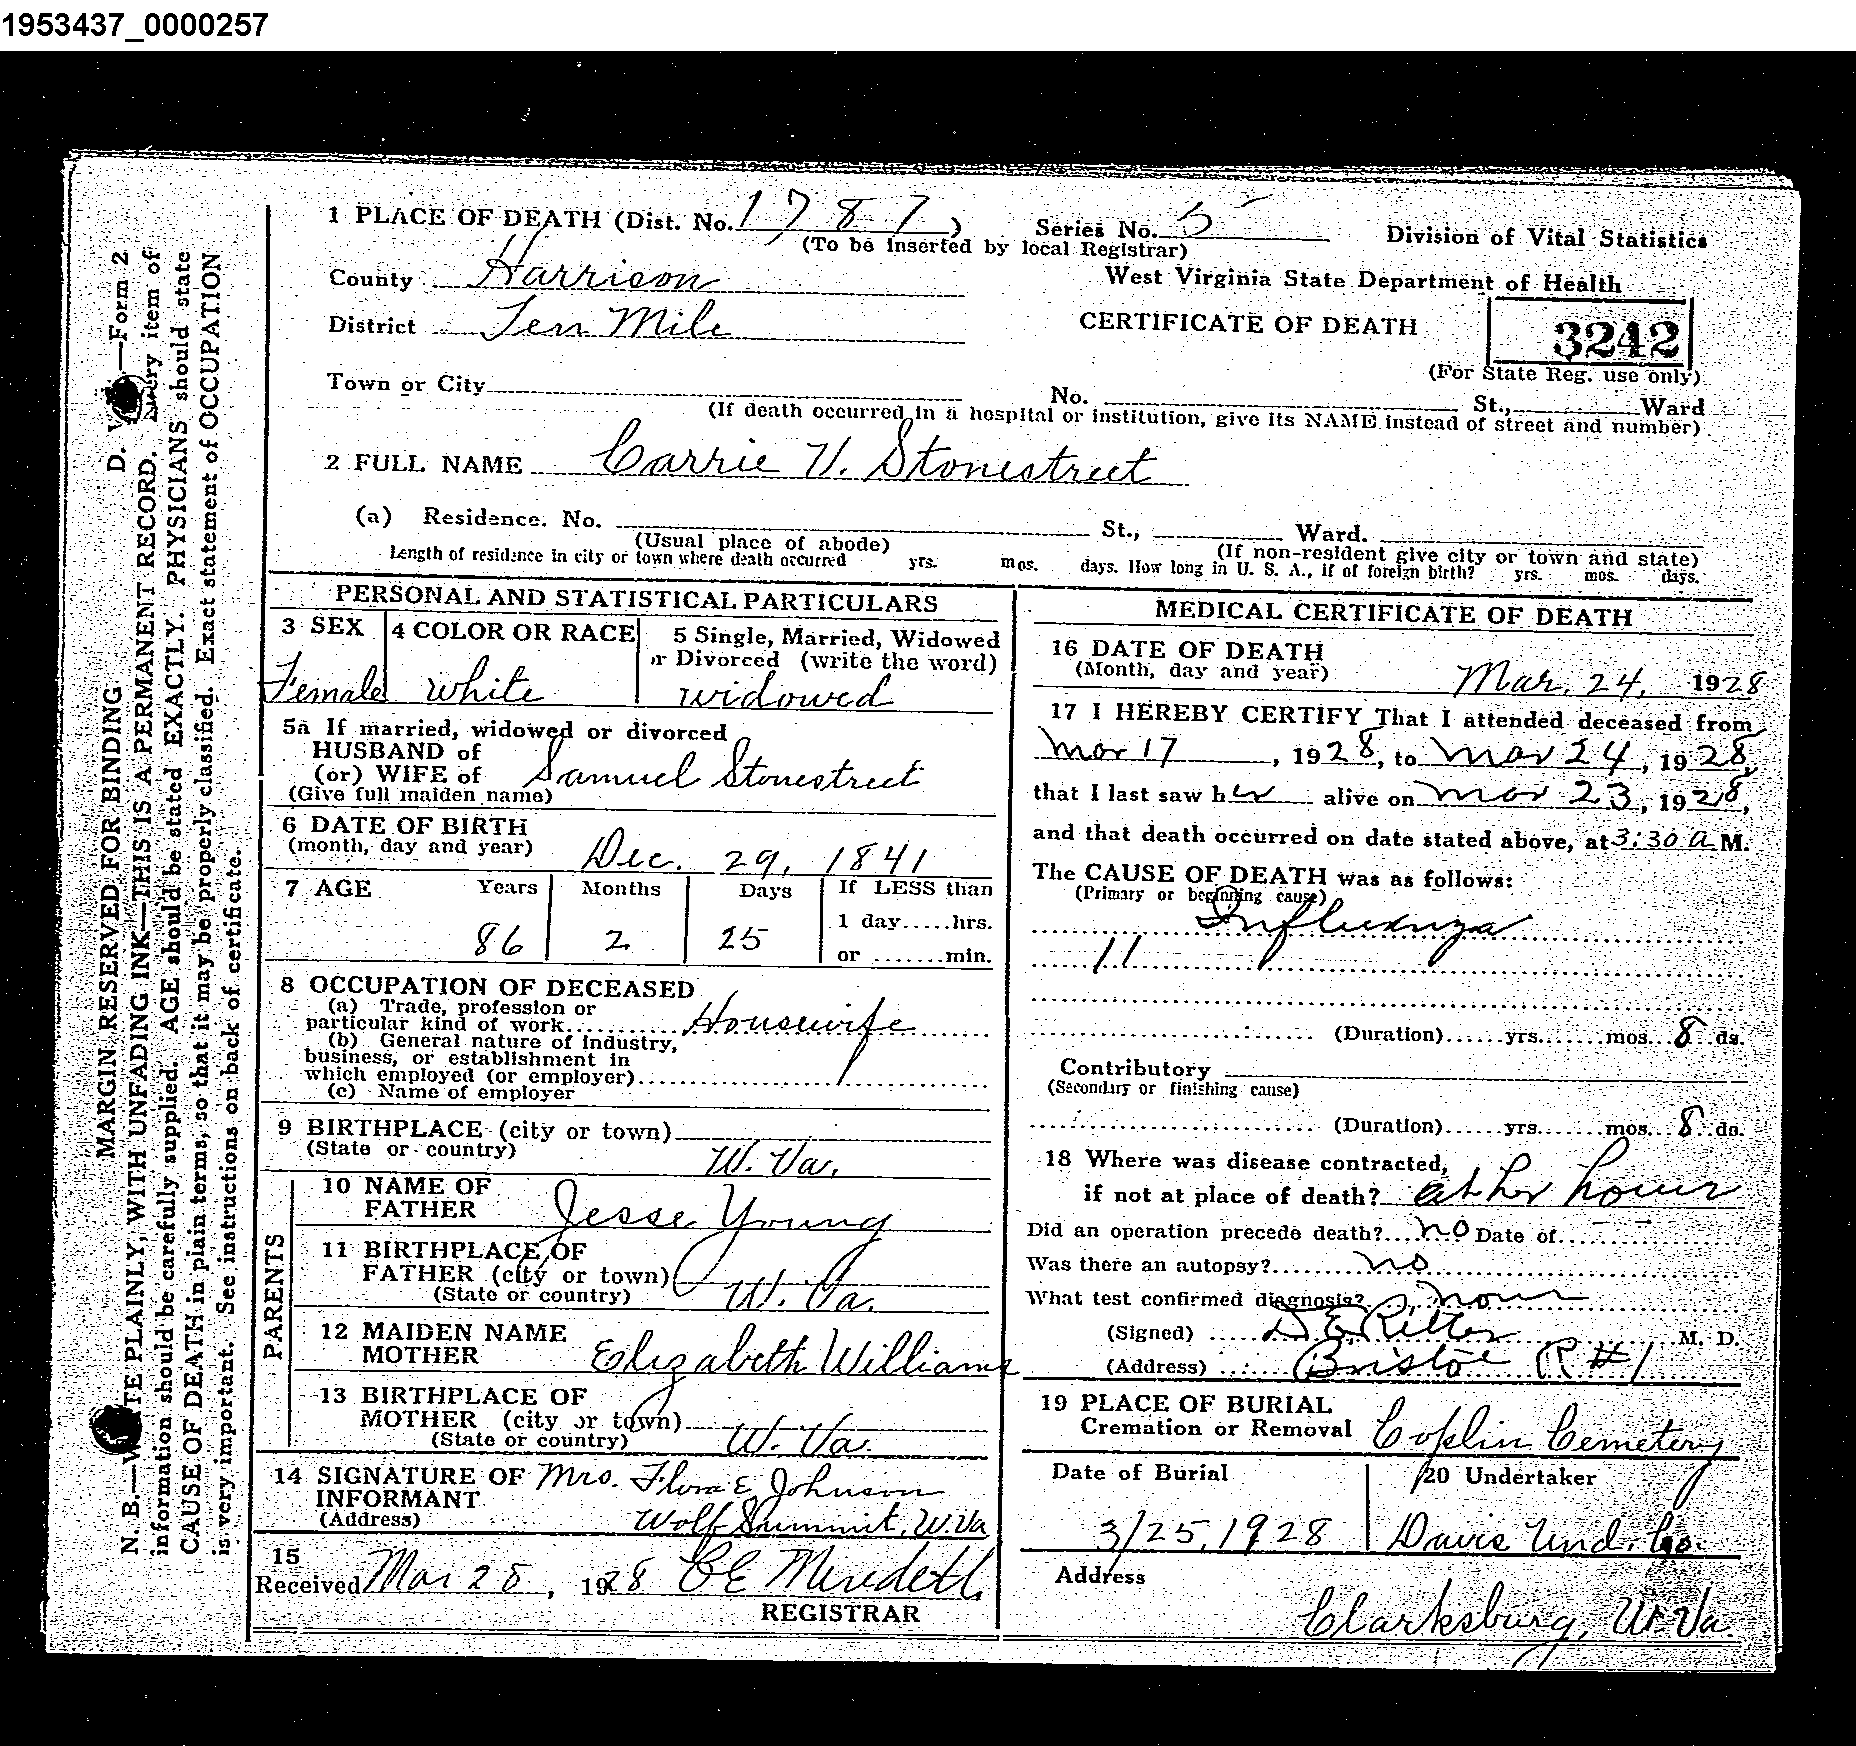 1953437_0000257
1 PLACE OF DEATH (Dist. No. 1787) Series No. 5 Division of Vital Statistics
(To be inserted by local Registrar)
County Harrison West Virginia State Department of Health
District Ten Mile CERTIFICATE OF DEATH 3242
(For State Reg. use only)
Town or City No. St., Ward
(If death occurred in a hospital or institution, give its NAME instead of street and number)
2 FULL NAME Carrie V. Stonestreet
(a) Residence. No. St., Ward.
(Usual place of abode) (If non-resident give city or town and state)
Length of residence in city or town where death occurred yrs. mos. days. How long in U. S. A., if of foreign birth? yrs. mos. days.
PERSONAL AND STATISTICAL PARTICULARS
3 SEX 4 COLOR OR RACE 5 Single, Married, Widowed
or Divorced (write the word)
Female white widowed
5a If married, widowed or divorced
HUSBAND of
(or) WIFE of Samuel Stonestreet
(Give full maiden name)
6 DATE OF BIRTH
(month, day and year) Dec. 29, 1841
7 AGE Years Months Days If LESS than
1 day.....hrs.
86 2 25
or .......min.
8 OCCUPATION OF DECEASED
(a) Trade, profession or
particular kind of work Housewife
(b) General nature of industry,
business, or establishment in
which employed (or employer)
(c) Name of employer
9 BIRTHPLACE (city or town)
(State or country) W. Va.
PARENTS
10 NAME OF
FATHER Jesse Young
11 BIRTHPLACE OF
FATHER (city or town)
(State or country) W. Va.
12 MAIDEN NAME
MOTHER Elizabeth Williams
13 BIRTHPLACE OF
MOTHER (city or town)
(State or country) W. Va.
14 SIGNATURE OF Mrs. Flora E Johnson
INFORMANT
(Address) Wolf Summit, W.Va
15
Received Mar 28, 1928 CE Meredeth
REGISTRAR
MEDICAL CERTIFICATE OF DEATH
16 DATE OF DEATH
(Month, day and year) Mar. 24, 1928
17 I HEREBY CERTIFY That I attended deceased from
Mar 17, 1928, to Mar 24, 1928,
that I last saw her alive on Mar 23, 1928,
and that death occurred on date stated above, at 3:30 a M.
The CAUSE OF DEATH was as follows:
(Primary or beginning cause)
Influenza
11
(Duration)......yrs.......mos...8..ds.
Contributory
(Secondary or finishing cause)
(Duration)......yrs.......mos...8..ds.
18 Where was disease contracted,
if not at place of death? at her home
Did an operation precede death? no Date of
Was there an autopsy? no
What test confirmed diagnosis? none
(Signed) D E Ritter M. D.
(Address) Bristol R #1
19 PLACE OF BURIAL
Cremation or Removal Coplin Cemetery
Date of Burial 20 Undertaker
3/25, 1928 Davis Und. Co.
Address
Clarksburg, W. Va.
MARGIN RESERVED FOR BINDING D. —Form 2
N. B.—W TE PLAINLY, WITH UNFADING INK—THIS IS A PERMANENT RECORD. Every item of
information should be carefully supplied. AGE should be stated EXACTLY. PHYSICIANS should state
CAUSE OF DEATH in plain terms, so that it may be properly classified. Exact statement of OCCUPATION
is very important. See instructions on back of certificate.